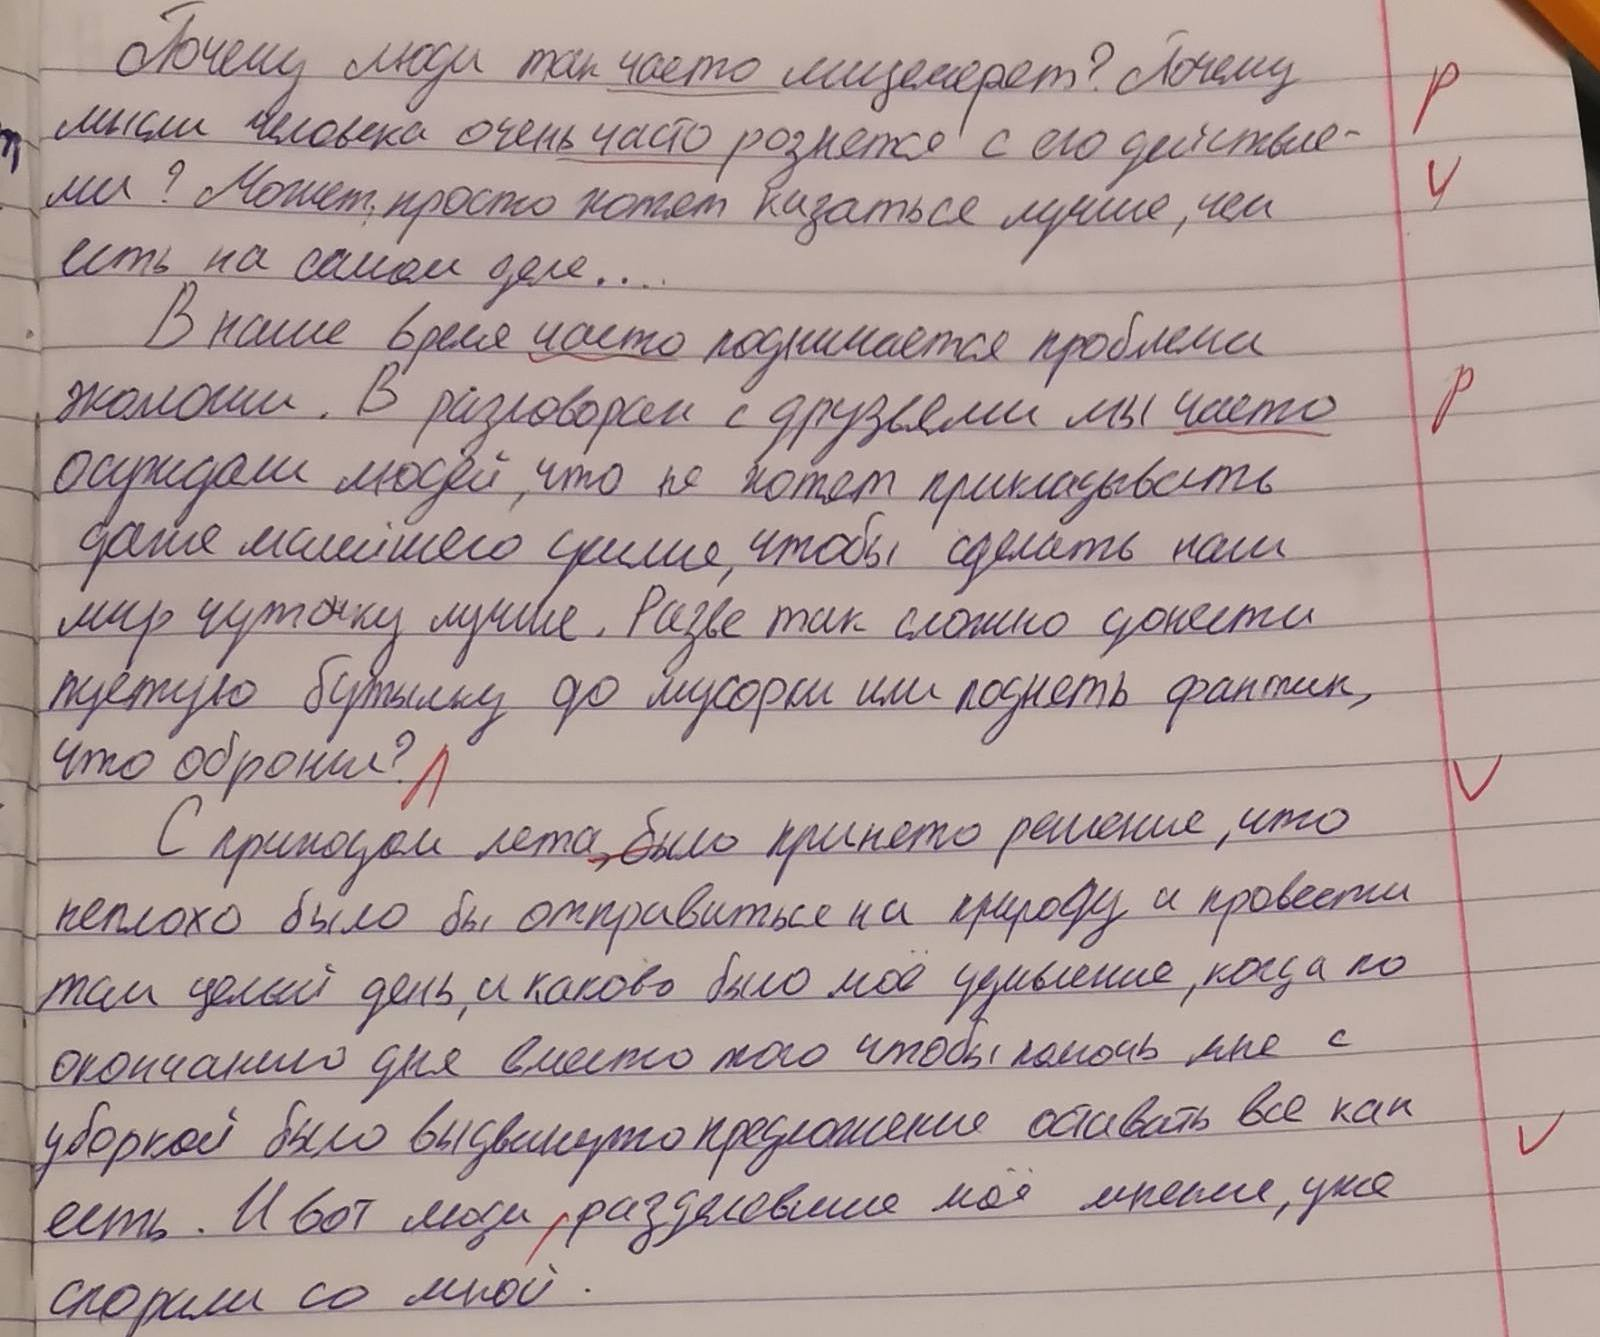 Почему люди так часто лицемерят? Почему
мысли человека очень часто рознятся с его действия-
ми? Может, просто хотят казаться лучше, чем
есть на самом деле....
В наше время часто поднимается проблема
экологии. В разговорах с друзьями мы часто
осуждали людей, что не хотят прикладывать
даже малейшего усилия, чтобы сделать наш
мир чуточку лучше. Разве так сложно донести
пустую бутылку до мусорки или поднять фантик,
что обронил?
С приходом лета, было принято решение, что
неплохо было бы отправиться на природу и провести
там целый день, и каково было моё удивление, когда по
окончанию дня вместо того чтобы помочь мне с
уборкой было выдвинуто предложение оставить все как
есть. И вот люди, разделявшие моё мнение, уже
спорили со мной.
р
ч
р